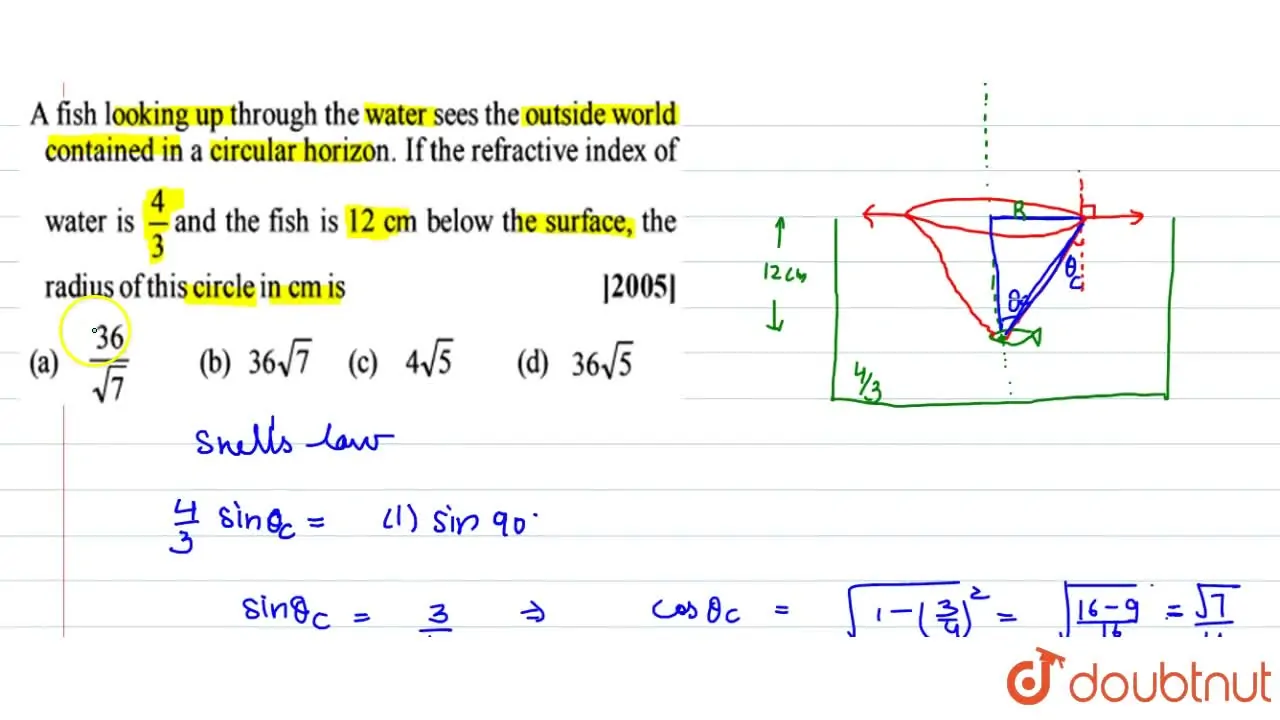 A fish looking up through the water sees the outside world
contained in a circular horizon. If the refractive index of
water is 4/3 and the fish is 12 cm below the surface, the
radius of this circle in cm is [2005]
(a) 36/√7 (b) 36√7 (c) 4√5 (d) 36√5
R
12 cm
θc
θc
4/3
Snell's law
4/3 sinθc = (1) sin 90°
sinθc = 3/4 ⇒ cosθc = √1-(3/4)² = √16-9/16 = √7/4
doubtnut